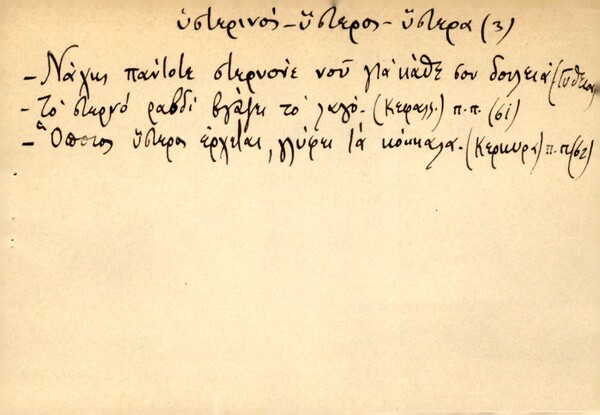 ὑστερινός - ὕστερος - ὕστερα (3)
- Νάχῃς πάντοτε στερνόνε νοῦ γιὰ κάθε σου δουλειά (Γύθειο)
- Τὸ στερνό ραβδί βγάζει τὸ λαγό. (Κεφαλλ.) π.π. (61)
- Ὅποιος ὕστερος ἔρχεται, γλύφει τὰ κόκκαλα. (Κερκυρα) π.π. (62)